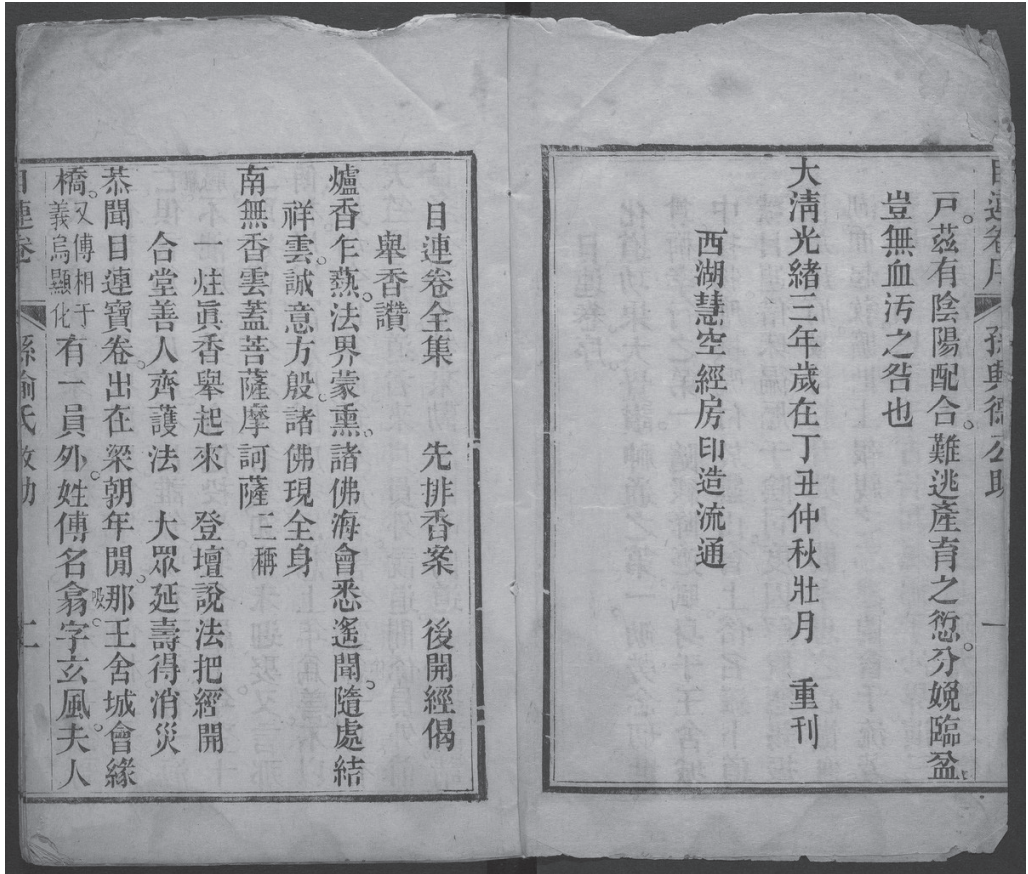 目連卷序　孫興德公助　一
戸。茲有陰陽配合。難逃產育之愆。分娩臨盆
豈無血汚之咎也
大淸光緒三年歲在丁丑仲秋壯月　重刊
西湖慧空經房印造流通
目連卷全集　先排香案　後開經偈
舉香讚
爐香乍爇。法界蒙熏。諸佛海會悉遙聞。隨處結
祥雲。誠意方殷。諸佛現全身
南無香雲蓋菩薩摩訶薩三稱
一炷眞香舉起來　登壇說法把經開
合堂善人齊護法　大眾延壽得消災
恭聞目連寶卷。出在梁朝年閒。那王舍城會緣
橋。又傳相于義烏顯化有一員外。姓傅名翕吸。字玄風。夫人
目連卷　孫俞氏敬助　二